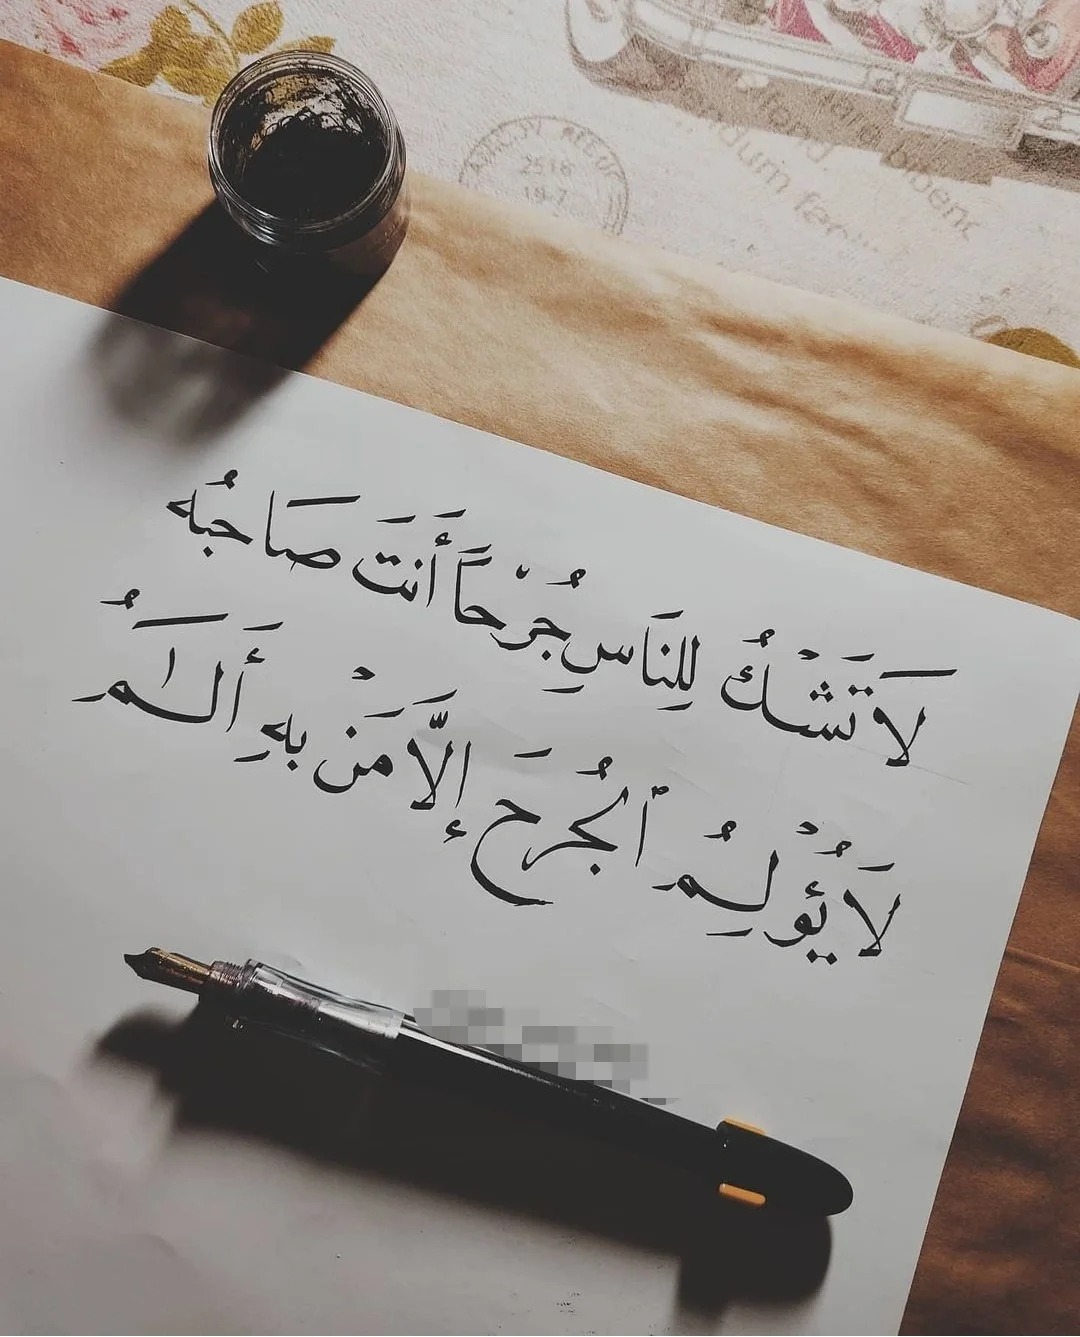 لَا تَشْكُ لِلنَاسِ جُرْحَاً أَنتَ صَاحبُه
لَا يُؤْلِمُ ٱلجُرحَ إِلَّا مَنْ بِهِ أَلَمُ
2516
18-7